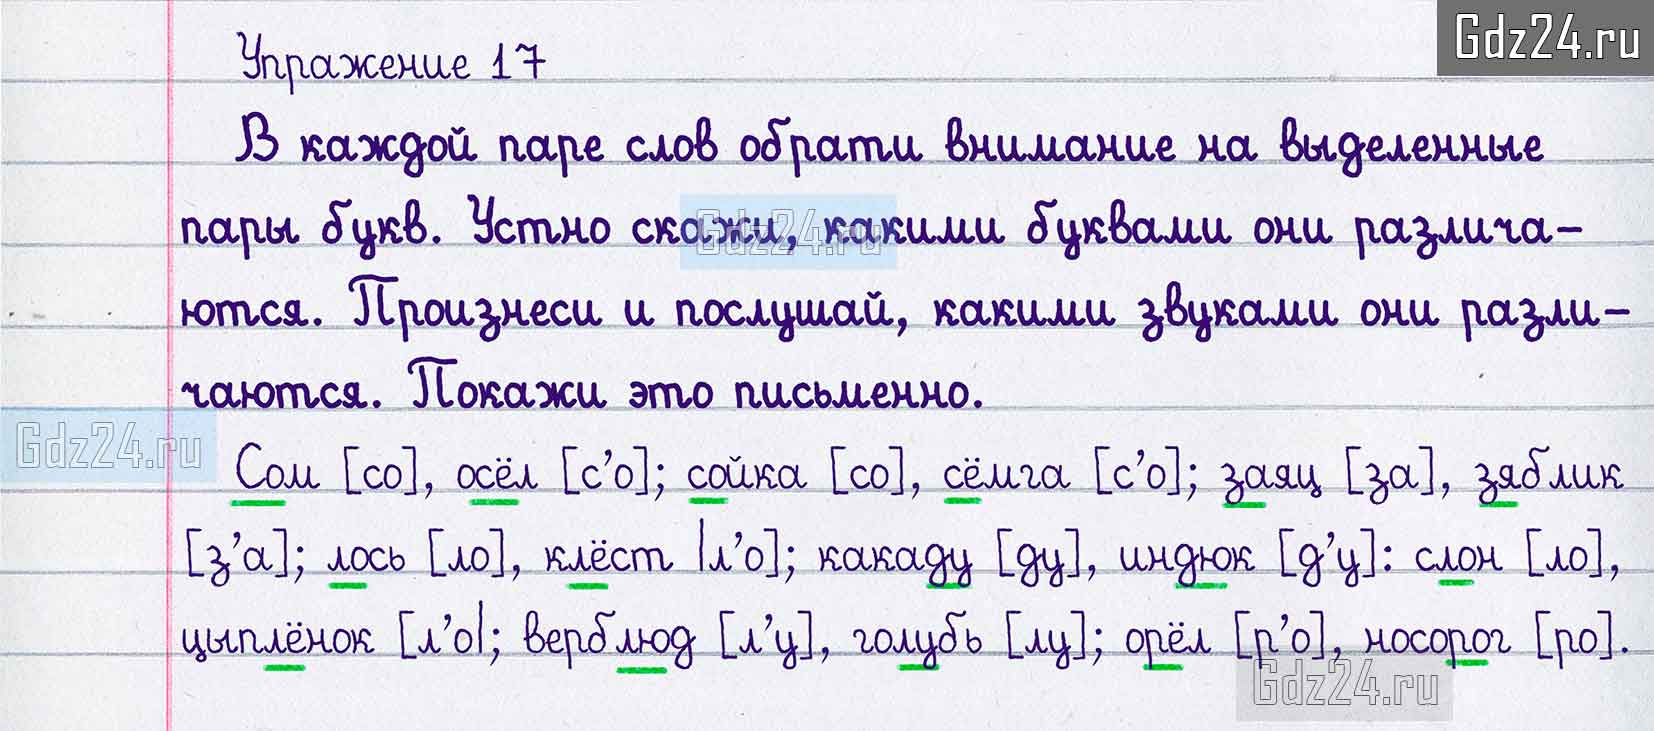 Gdz24.ru
Упражнение 17
В каждой паре слов обрати внимание на выделенные
пары букв. Устно скажи, какими буквами они различа-
Gdz24.ru
ются. Произнеси и послушай, какими звуками они разли-
чаются. Покажи это письменно.
Gdz24.ru
Сом [со], осёл [с’о]; сойка [со], сёмга [с’о]; заяц [за], зяблик
[з’а]; лось [ло], клёст |л’о]; какаду [ду], индюк [д’у]: слон [ло],
цыплёнок [л’о|; верблюд [л’у], голубь [лу]; орёл [р’о], носорог [ро].
Gdz24.ru